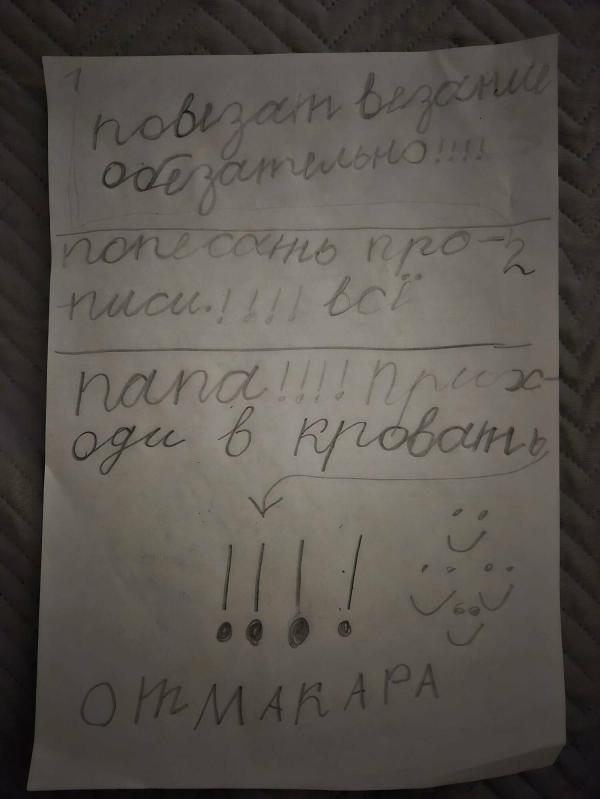 1
повезат везание
обезательно!!!!
попесать про- 2
писи.!!!! всї
папа!!!! Прих-
оди в кровать
!!!!
ОТ МАКАРА